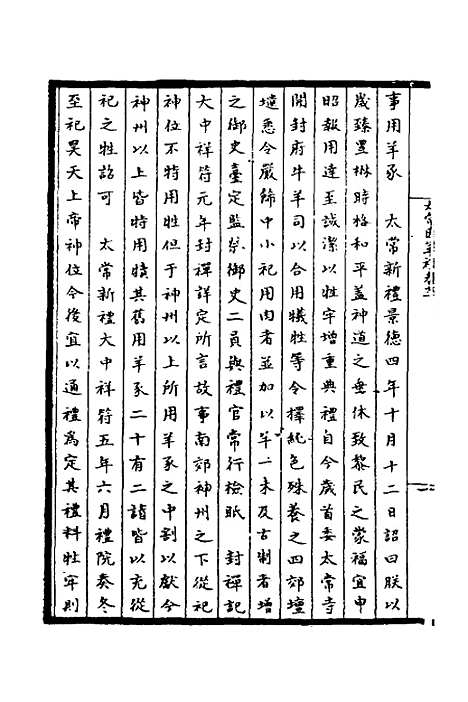 事用羊豕　太常新禮景德四年十月十二日詔曰朕以
歲臻豐楙時格和平蓋神道之垂休致黎民之蒙福宜申
昭報用達至誠潔以牲牢增重典禮自今歲首委太常寺
開封府牛羊司以合用犧牲等令擇純色殊養之四郊壇
壝悉令嚴飾中小祀用肉者並加以羊一未及古制者增
之御史臺定監祭御史二員與禮官常行檢眂　封禪記
大中祥符元年封禪詳定所言故事南郊神州之下從祀
神位不特用牲但于神州以上所用羊豕之中割以獻今
神州以上皆特用犢其舊用羊豕二十有二請皆以充從
祀之牲詔可　太常新禮大中祥符五年六月禮院奏冬
至祀昊天上帝神位令後宜以通禮為定其禮料牲牢則
太常因革禮卷